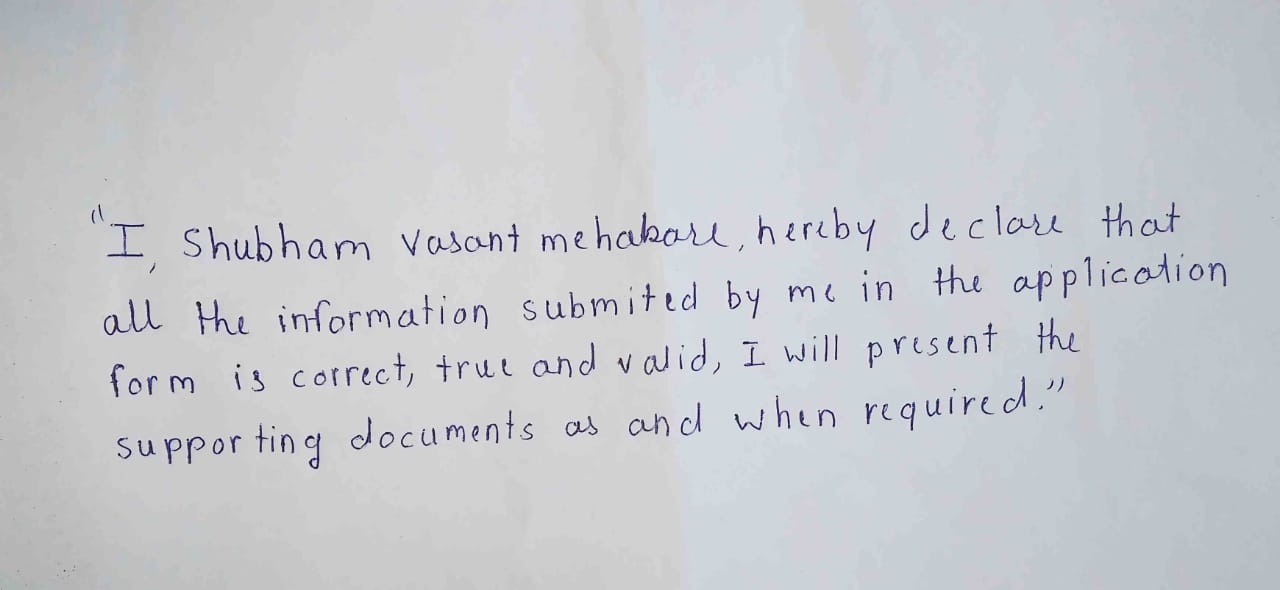 "I, Shubham Vasant mehakare, hereby declare that
all the information submited by me in the application
form is correct, true and valid, I will present the
supporting documents as and when required."